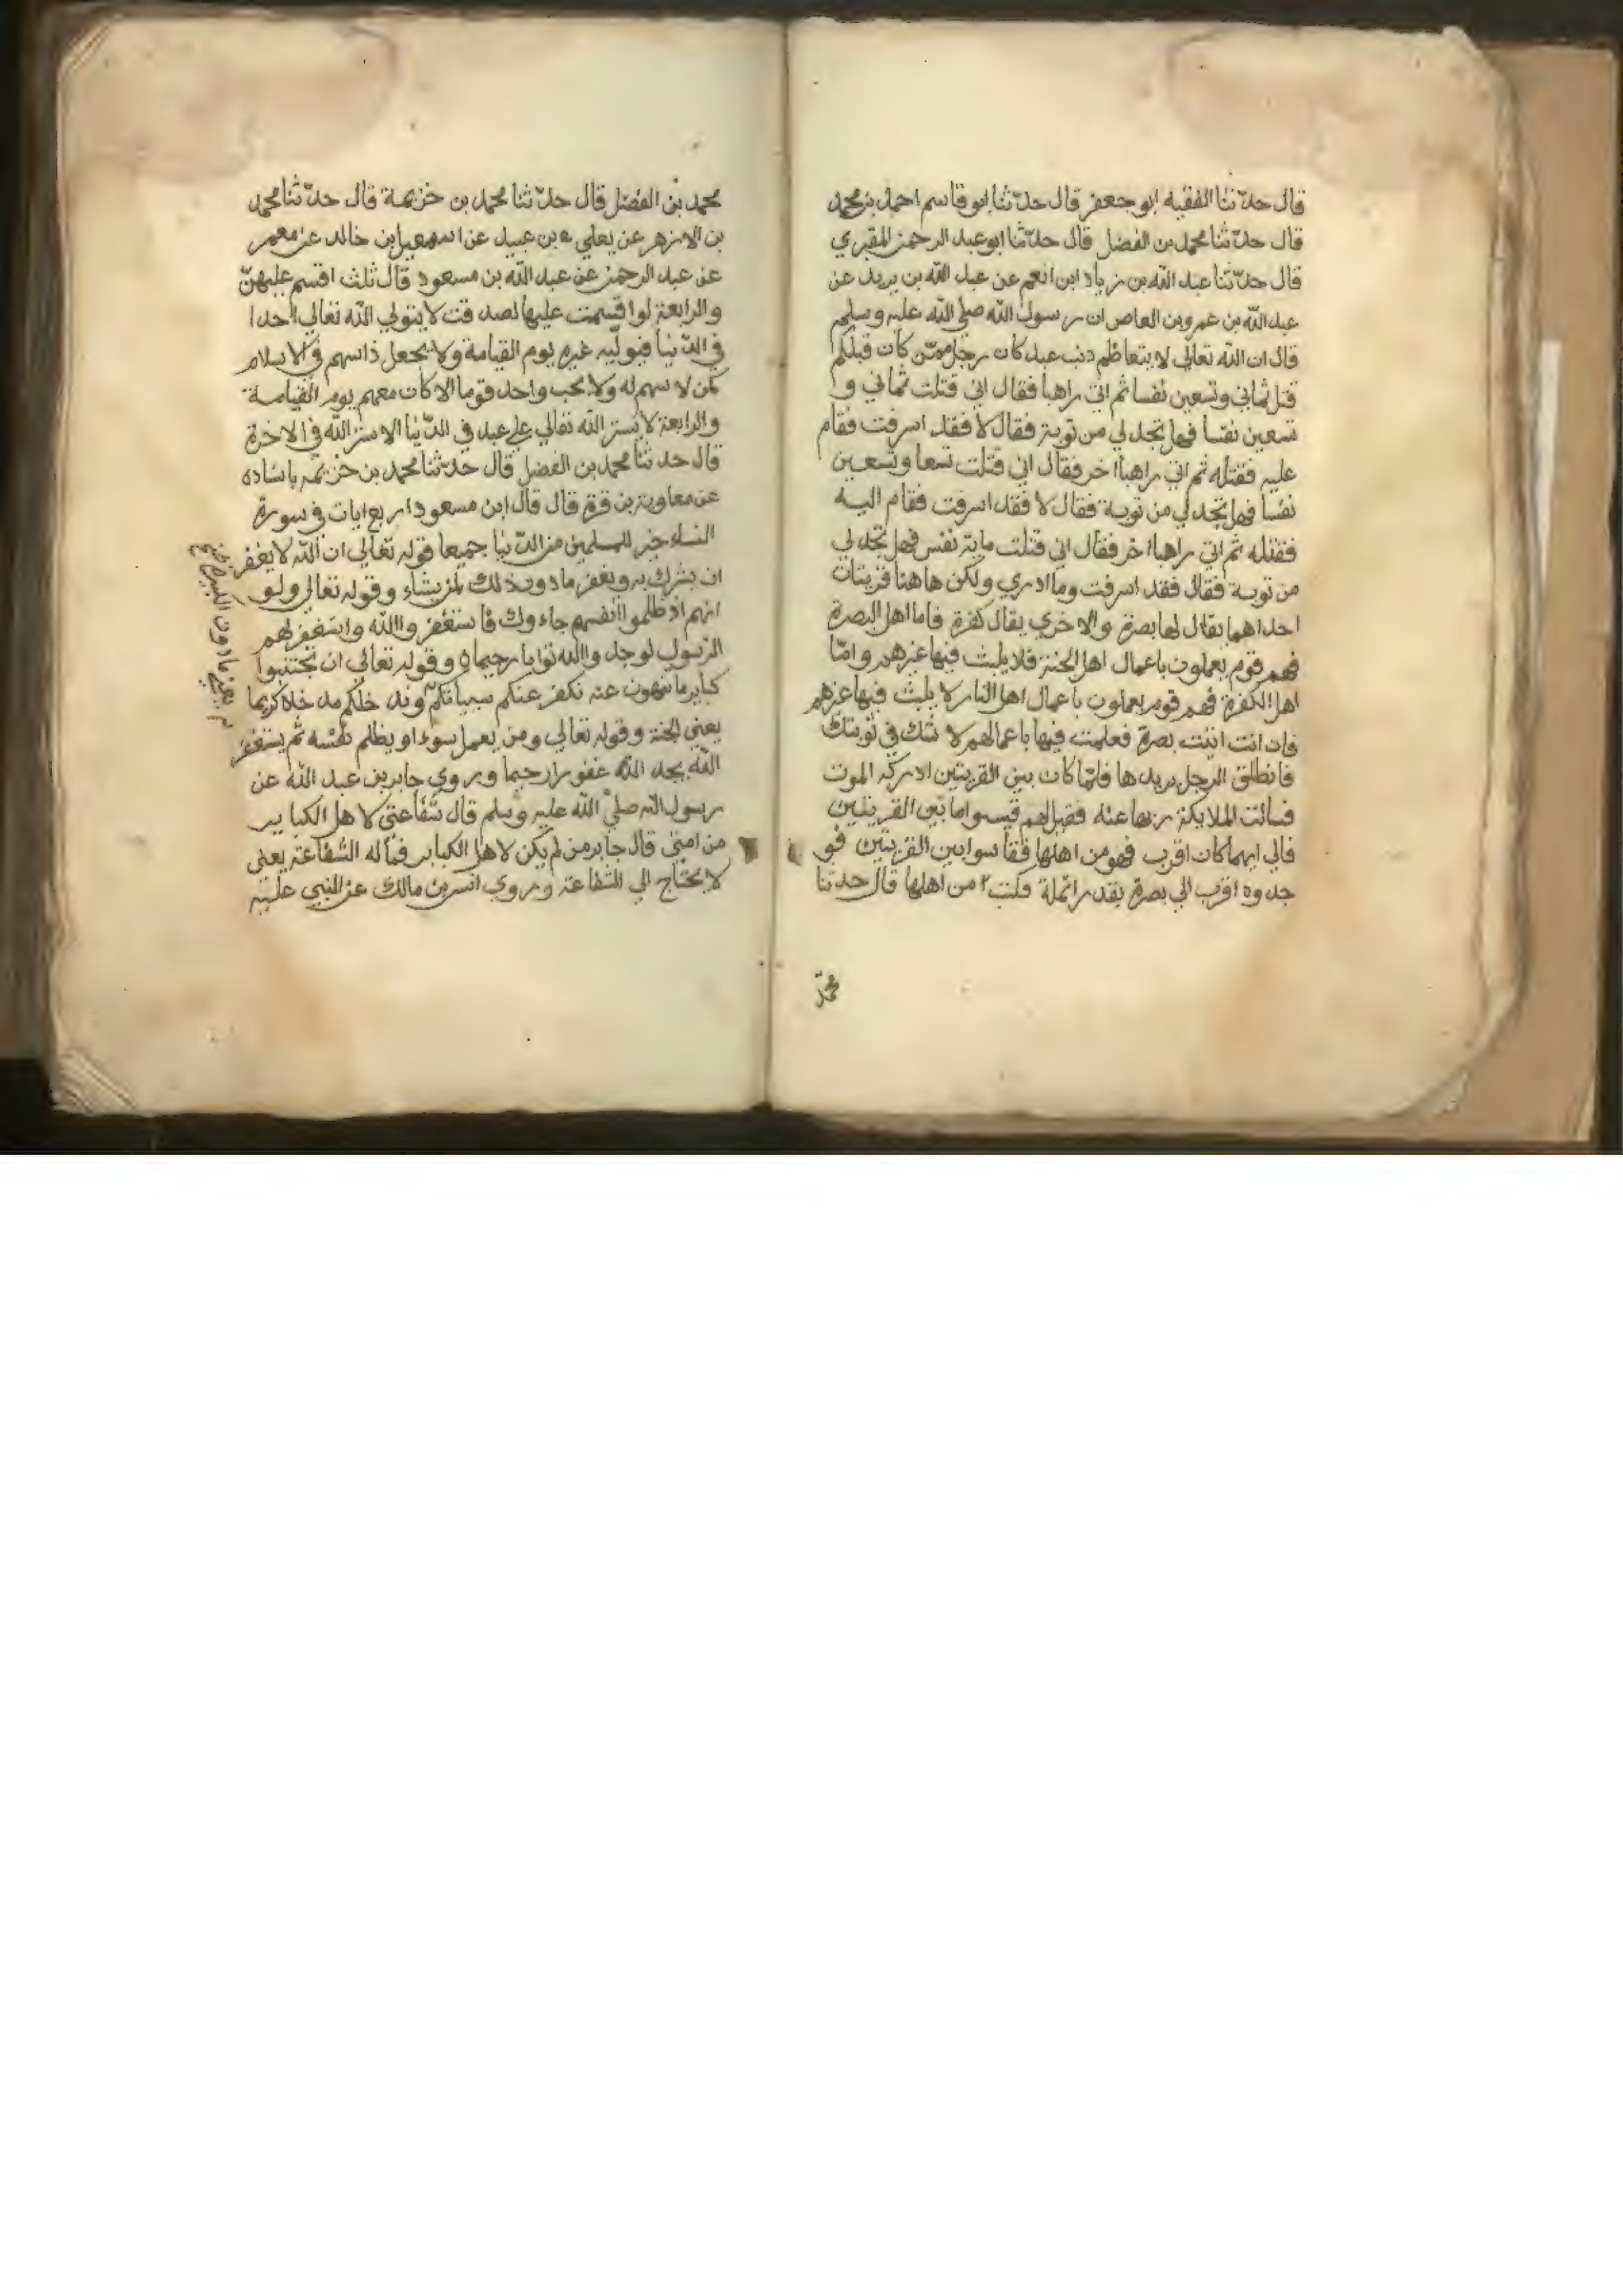 قال حدّثنا الفقيه ابو جعفر قال حدّثنا ابو قاسم احمد بن محمد
قال حدّثنا محمد بن الفضل قال حدّثنا ابو عبد الرحمن المقبري
قال حدّثنا عبد الله بن زياد ابن انعم عن عبد الله بن يريد عن
عبد الله بن عمرو بن العاص ان رسول الله صلى الله عليه وسلم
قال ان الله تعالى لا يتعاظم ذنب عبد كان رجل ممّن كان قبلكم
قتل ثماني وتسعين نفسا ثم اتي راهبا فقال اني قتلت ثماني و
تسعين نفسا فهل تجد لي من توبة فقال لا فقد اسرفت فقام
عليه فقتله ثم اتي راهبا اخر فقال اني قتلت تسعا وتسعين
نفسا فهل تجد لي من توبة فقال لا فقد اسرفت فقام اليه
فقتله ثم اتي راهبا اخر فقال اني قتلت ماية نفس فهل تجد لي
من توبة فقال فقد اسرفت وما ادري ولكن هاهنا قريتان
احداهما يقال لها بصرة والاخري يقال كفرة فاما اهل البصرة
فهم قوم يعملون باعمال اهل الجنة فلا يلبث فيها غيرهم وامّا
اهل الكفرة فهم قوم يعملون باعمال اهل النار لا يلبث فيها غيرهم
فان انت اتيت بصرة فعلمت فيها باعمالهم لا شك في توبتك
فانطلق الرجل يريدها فلمّا كان بين القريتين ادركه الموت
فسالت الملايكة ربها عنه فقيل لهم قيسوا ما بين القريتين
فالي ايهما كان اقرب فهو من اهلها فقاسوا بين القريتين فو
جدوه اقرب الي بصرة بقدر انملة فكتب من اهلها قال حدثنا
محمّد
محمد بن الفضل قال حدّثنا محمد بن خزيمة قال حدّثنا محمد
بن الازهر عن يعلي بن عبيد عن اسمعيل بن خالد عن معمر
عن عبد الرحمن عن عبد الله بن مسعود قال ثلث اقسم عليهنّ
والرابعة لو اقسمت عليها لصدقت لا يتولي الله تعالي احدا
في الدّنيا فيولّيه غيره يوم القيامة ولا يجعل ذا سهم في الاسلام
كمن لا سهم له ولا يحب واحد قوما الا كان معهم يوم القيامة
والرابعة لا يستر الله تعالي علي عبد في الدّنيا الا ستر الله في الاخرة
قال حدثنا محمد بن الفضل قال حدّثنا محمد بن خزيمه باسناده
عن معاوية بن قرة قال قال ابن مسعود اربع ايات في سورة
النساء خير للمسلمين من الدّنيا جميعا قوله تعالي ان الله لا يغفر
ان يشرك به ويغفر ما دون ذلك لمن يشاء وقوله تعالي ولو
انهم اذ ظلموا انفسهم جاءوك فاستغفروا الله واستغفر لهم
الرسول لوجدوا الله توابا رحيما وقوله تعالي ان تجتنبوا
كباير ما تنهون عنه نكفر عنكم سيياتكم وندخلكم مدخلا كريما
يعني الجنة وقوله تعالي ومن يعمل سوءا او يظلم نفسه ثم يستغفر
الله يجد الله غفورا رحيما وروي جابر بن عبد الله عن
رسول الله صلي الله عليه وسلم قال شفاعتي لاهل الكباير
من امتي قال جابر من لم يكن لاهل الكباير فما له الشفاعة يعني
لا يحتاج الي الشفاعة وروي انس بن مالك عن النبي عليه
يعني ما دون